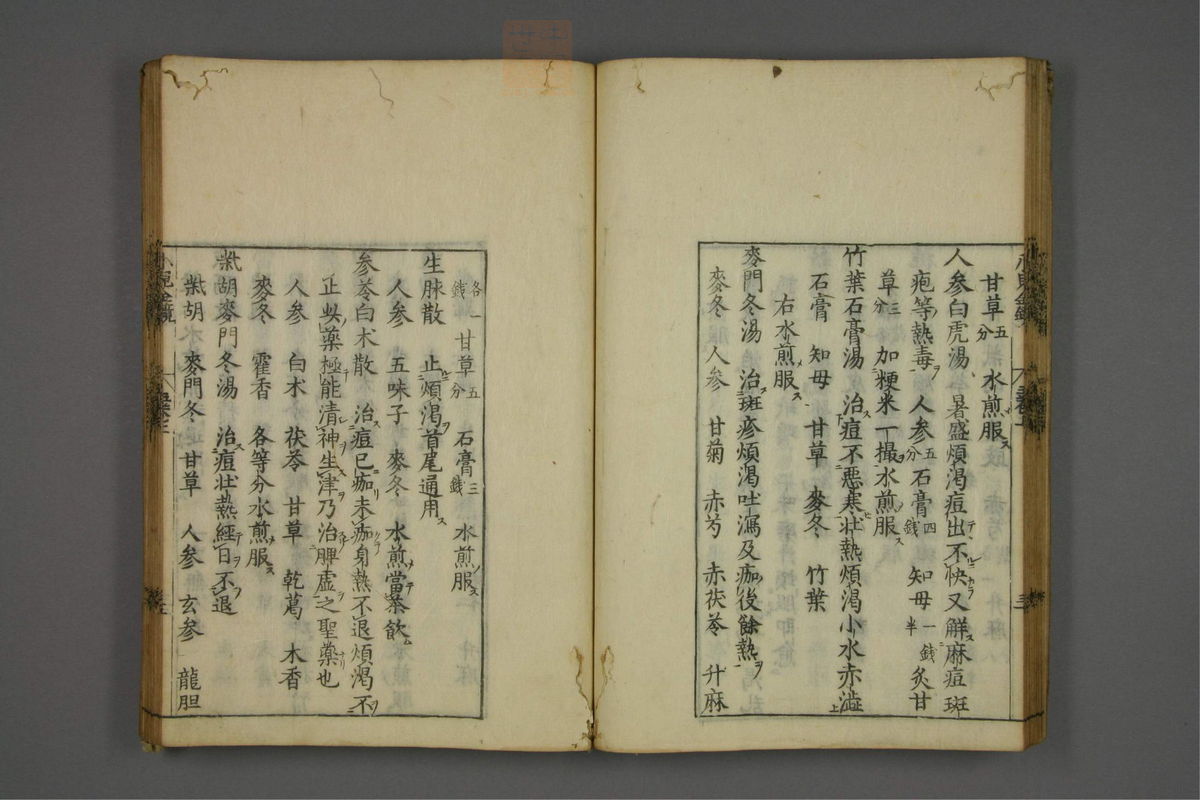 甘草五分 水煎服ス
人参白虎湯 暑盛煩渇痘出不快又解麻痘斑
疱等熱毒 人参五分 石膏四錢 知母一錢半 炙甘
草三分 加粳米一撮水煎服
竹葉石膏湯 治痘不悪寒壮熱煩渇小水赤澁
石膏 知母 甘草 麥冬 竹葉
右水煎服
麥門冬湯 治斑疹煩渇吐瀉及痂後餘熱
麥冬 人参 甘菊 赤芍 赤茯苓 升麻
各一錢 甘草五分 石膏三錢 水煎服
生脉散 止煩渇首尾通用
人参 五味子 麥冬 水煎當茶飲
参苓白朮散 治痘已痂未痂身熱不退煩渇不
正此藥極能清神生津乃治脾虛之聖藥也
人参 白朮 茯苓 甘草 乾葛 木香
麥冬 霍香 各等分水煎服
柴胡麥門冬湯 治痘壮熱經日不退
柴胡 麥門冬 甘草 人参 玄参 龍胆